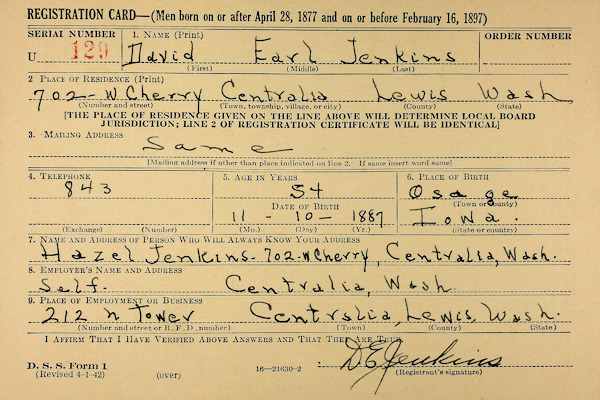 REGISTRATION CARD—(Men born on or after April 28, 1877 and on or before February 16, 1897)
SERIAL NUMBER 1. NAME (Print) ORDER NUMBER
U 129 David Earl Jenkins
(First) (Middle) (Last)
2. PLACE OF RESIDENCE (Print)
702-W Cherry Centralia Lewis Wash
(Number and street) (Town, township, village, or city) (County) (State)
[THE PLACE OF RESIDENCE GIVEN ON THE LINE ABOVE WILL DETERMINE LOCAL BOARD
JURISDICTION; LINE 2 OF REGISTRATION CERTIFICATE WILL BE IDENTICAL]
3. MAILING ADDRESS
Same
[Mailing address if other than place indicated on line 2. If same insert word same]
4. TELEPHONE 5. AGE IN YEARS 6. PLACE OF BIRTH
843 54 Osage
DATE OF BIRTH (Town or county)
11 - 10 - 1887 Iowa.
(Exchange) (Number) (Mo.) (Day) (Yr.) (State or country)
7. NAME AND ADDRESS OF PERSON WHO WILL ALWAYS KNOW YOUR ADDRESS
Hazel Jenkins-702-W Cherry, Centralia, Wash.
8. EMPLOYER'S NAME AND ADDRESS
Self- Centralia, Wash.
9. PLACE OF EMPLOYMENT OR BUSINESS
212 N Tower Centralia, Lewis, Wash.
(Number and street or R. F. D. number) (Town) (County) (State)
I AFFIRM THAT I HAVE VERIFIED ABOVE ANSWERS AND THAT THEY ARE TRUE.
D E Jenkins
D. S. S. Form 1
(Revised 4-1-42) (over) 16—21630-2 (Registrant's signature)